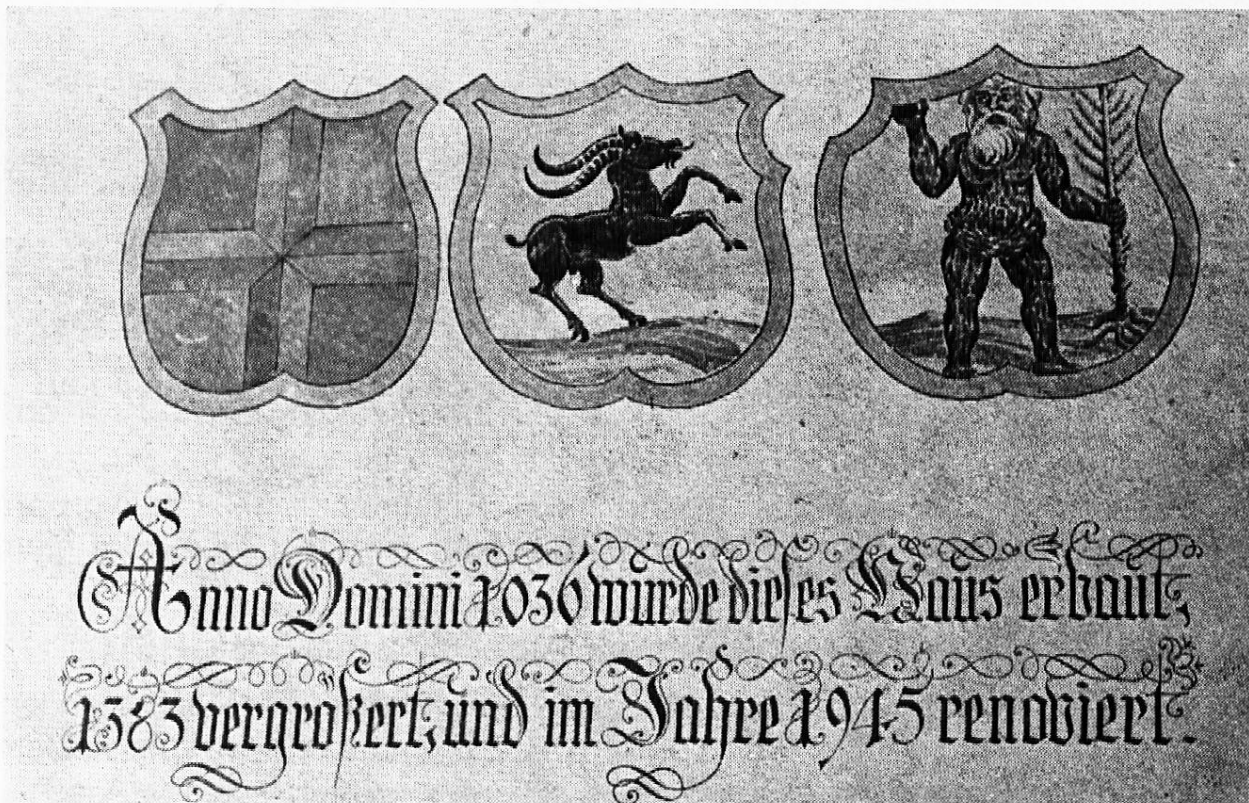 Anno Domini 1036 würde dieses Haus erbaut,
1383 vergrößert, und im Jahre 1945 renoviert.